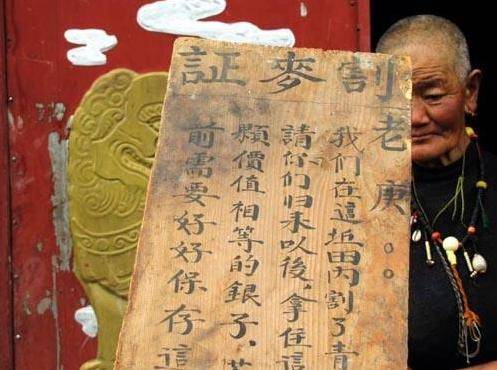 割麥証
老庚。。
我们在這坵田丙割了青
請你们归未以後,拿住這
顆價值相等的銀子,
前需要好好保存這